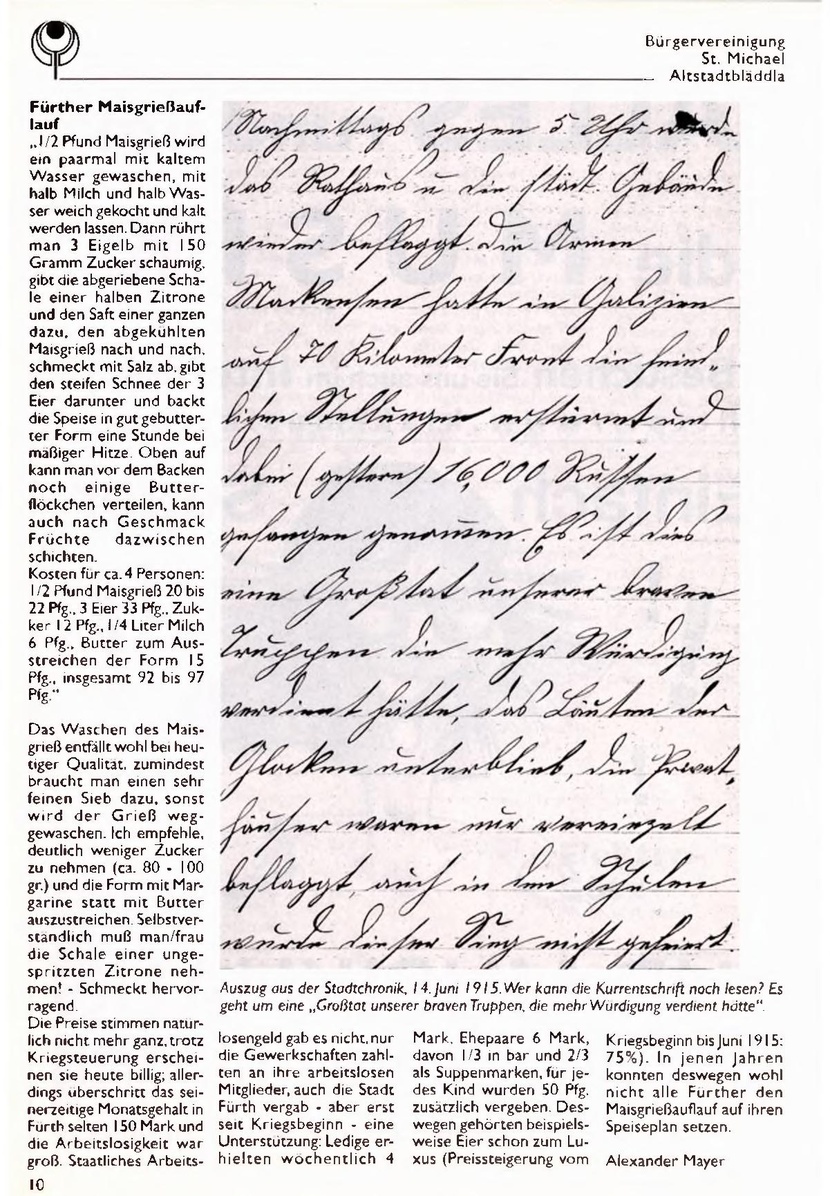 Bürgervereinigung
St. Michael
Altstadtbläddla
Fürther Maisgrießauf-
lauf
„1/2 Pfund Maisgrieß wird
ein paarmal mit kaltem
Wasser gewaschen, mit
halb Milch und halb Was-
ser weich gekocht und kalt
werden lassen. Dann rührt
man 3 Eigelb mit 150
Gramm Zucker schaumig,
gibt die abgeriebene Scha-
le einer halben Zitrone
und den Saft einer ganzen
dazu, den abgekühlten
Maisgrieß nach und nach,
schmeckt mit Salz ab, gibt
den steifen Schnee der 3
Eier darunter und backt
die Speise in gut gebutter-
ter Form eine Stunde bei
mäßiger Hitze. Oben auf
kann man vor dem Backen
noch einige Butter-
flöckchen verteilen, kann
auch nach Geschmack
Früchte dazwischen
schichten.
Kosten für ca. 4 Personen:
1/2 Pfund Maisgrieß 20 bis
22 Pfg., 3 Eier 33 Pfg., Zuk-
ker 12 Pfg., 1/4 Liter Milch
6 Pfg., Butter zum Aus-
streichen der Form 15
Pfg., insgesamt 92 bis 97
Pfg."
Das Waschen des Mais-
grieß entfällt wohl bei heu-
tiger Qualität, zumindest
braucht man einen sehr
feinen Sieb dazu, sonst
wird der Grieß weg-
gewaschen. Ich empfehle,
deutlich weniger Zucker
zu nehmen (ca. 80 - 100
gr.) und die Form mit Mar-
garine statt mit Butter
auszustreichen. Selbstver-
ständlich muß man/frau
die Schale einer unge-
spritzten Zitrone neh-
men! - Schmeckt hervor-
ragend.
Die Preise stimmen natür-
lich nicht mehr ganz, trotz
Kriegsteuerung erschei-
nen sie heute billig; aller-
dings überschritt das sei-
nerzeitige Monatsgehalt in
Fürth selten 150 Mark und
die Arbeitslosigkeit war
groß. Staatliches Arbeits-
Nachmittags gegen 5 Uhr wurde
das Rathaus u die städt. Gebäude
wieder beflaggt. die Armee
Mackensen hatte in Galizien
auf 70 Kilometer Front die feind-
lichen Stellungen erstürmt und
dabei (gestern) 16,000 Russen
gefangen genommen. Es ist dies
eine Großtat unserer braven
Truppen die mehr Würdigung
verdient hätte, das Läuten der
Glocken unterblieb, die Privat-
häuser waren nur vereinzelt
beflaggt, auch in den Schulen
wurde dieser Sieg nicht gefeiert.
Auszug aus der Stadtchronik, 14. Juni 1915. Wer kann die Kurrentschrift noch lesen? Es
geht um eine „Großtat unserer braven Truppen, die mehr Würdigung verdient hätte".
losengeld gab es nicht, nur
die Gewerkschaften zahl-
ten an ihre arbeitslosen
Mitglieder, auch die Stadt
Fürth vergab - aber erst
seit Kriegsbeginn - eine
Unterstützung: Ledige er-
hielten wöchentlich 4
Mark, Ehepaare 6 Mark,
davon 1/3 in bar und 2/3
als Suppenmarken, für je-
des Kind wurden 50 Pfg.
zusätzlich vergeben. Des-
wegen gehörten beispiels-
weise Eier schon zum Lu-
xus (Preissteigerung vom
Kriegsbeginn bis Juni 1915:
75%). In jenen Jahren
konnten deswegen wohl
nicht alle Fürther den
Maisgrießauflauf auf ihren
Speiseplan setzen.
Alexander Mayer
10